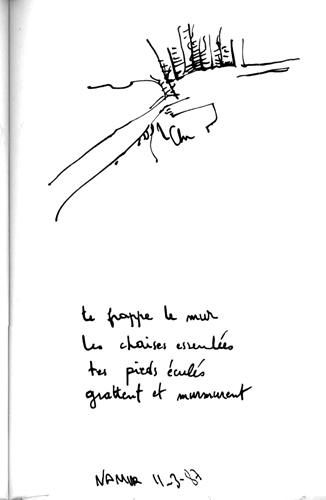 te frappe le mur
les chaises esseulées
tes pieds éculés
grattent et murmurent
NAMUR 11-3-87